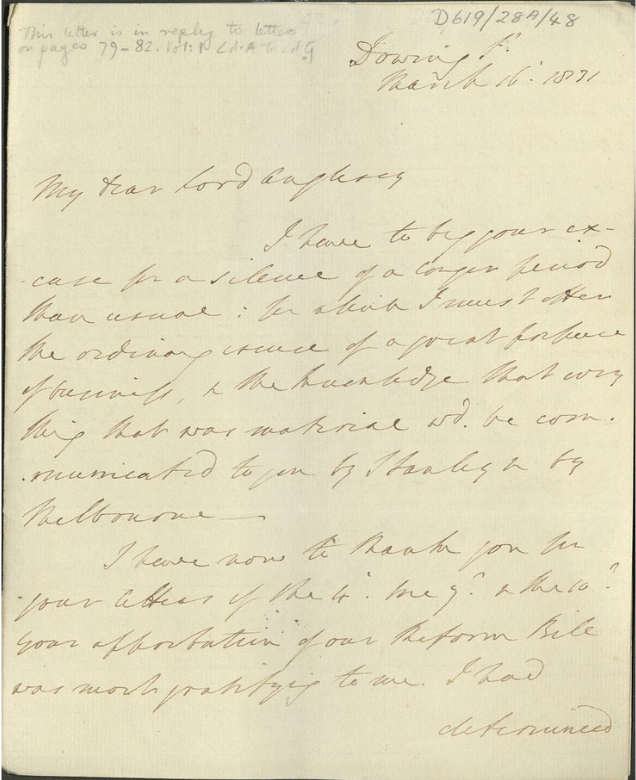 D619/28A/48
This letter is in reply to letters
on pages 79-82. Vol: 1 Ld. A to Ld. G
Downing St.
March 16. 1831
My dear Lord Anglesey
I have to beg your ex-
cuse for a silence of a longer period
than usual: for which I must offer
the ordinary excuse of a great pressure
of business, & the knowledge that every
thing that was material wd. be com-
municated to you by Stanley or by
Melbourne—
I have now to thank you for
your letters of the the 9th. & the 10th.
your approbation of our Reform Bill
was most gratifying to me. I had
determined